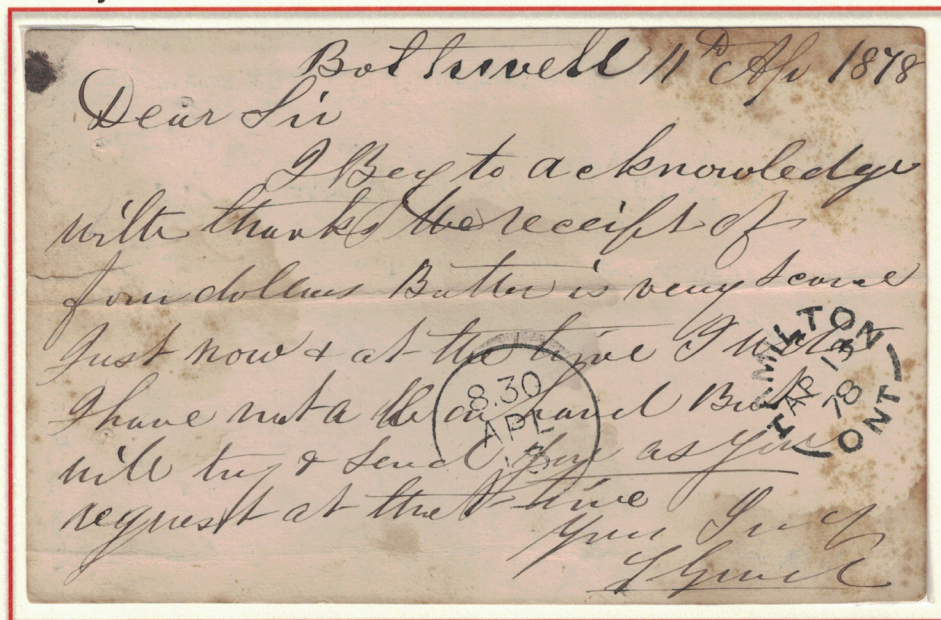 Bothwell 11th Ap 1878
Dear Sir
I Beg to acknowledge
with thanks the receipt of
four dollars Butter is very scarce
Just now & at the time I
I have not a lb on hand But
will try & send you as you
request at the time
Your
8.30
APL
13
HAMILTON
AP 13
78
ONT